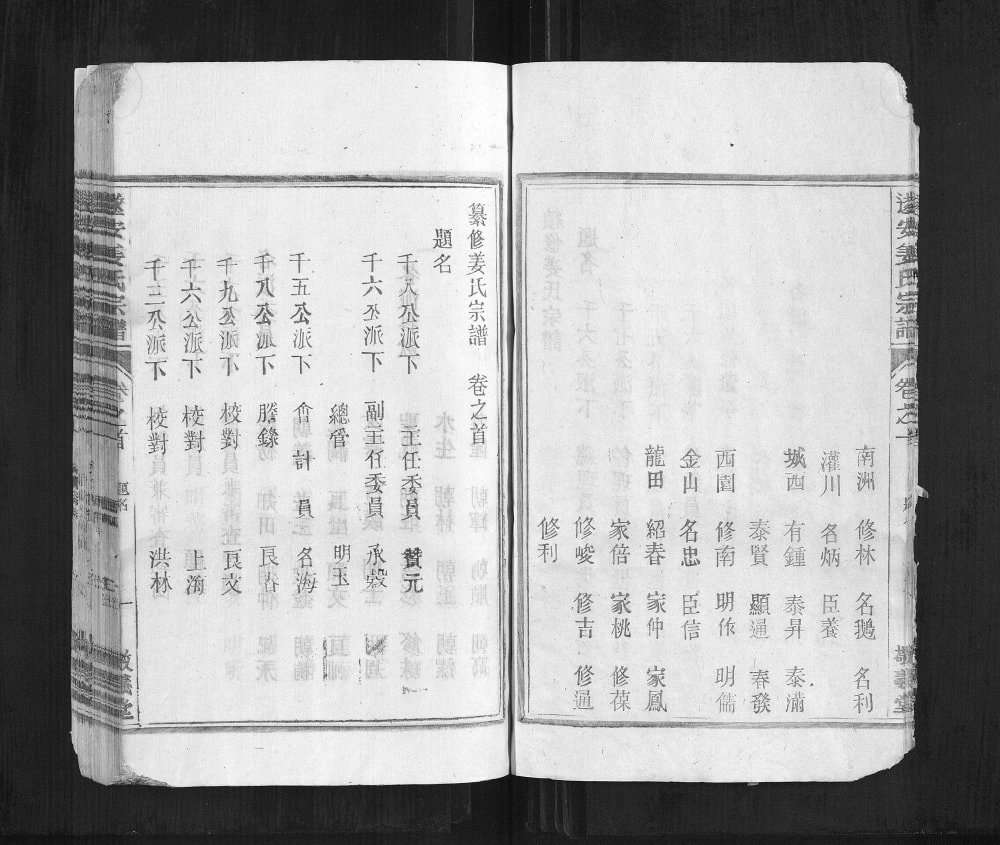 遂安姜氏宗譜 卷之一
南洲 修林 名鵝 名利
灌川 名炳 臣養
城西 有鍾 泰昇 泰滿
泰賢 顯通 春發
西園 修南 明作 明儒
金山 名忠 臣信
龍田 紹春 家仲 家鳳
家倍 家桃 修葆
修峻 修吉 修通
修利
纂修姜氏宗譜 卷之首
題名
千八公派下 主任委員 贊元
千六公派下 副主任委員 承穀
總管 明玉
千五公派下 會計員 名海
千八公派下 謄錄 良沽
千九公派下 校對 良文
千六公派下 校對 上海
千三公派下 校對 洪林
遂安姜氏宗譜 卷之首 題名 一 敬義堂